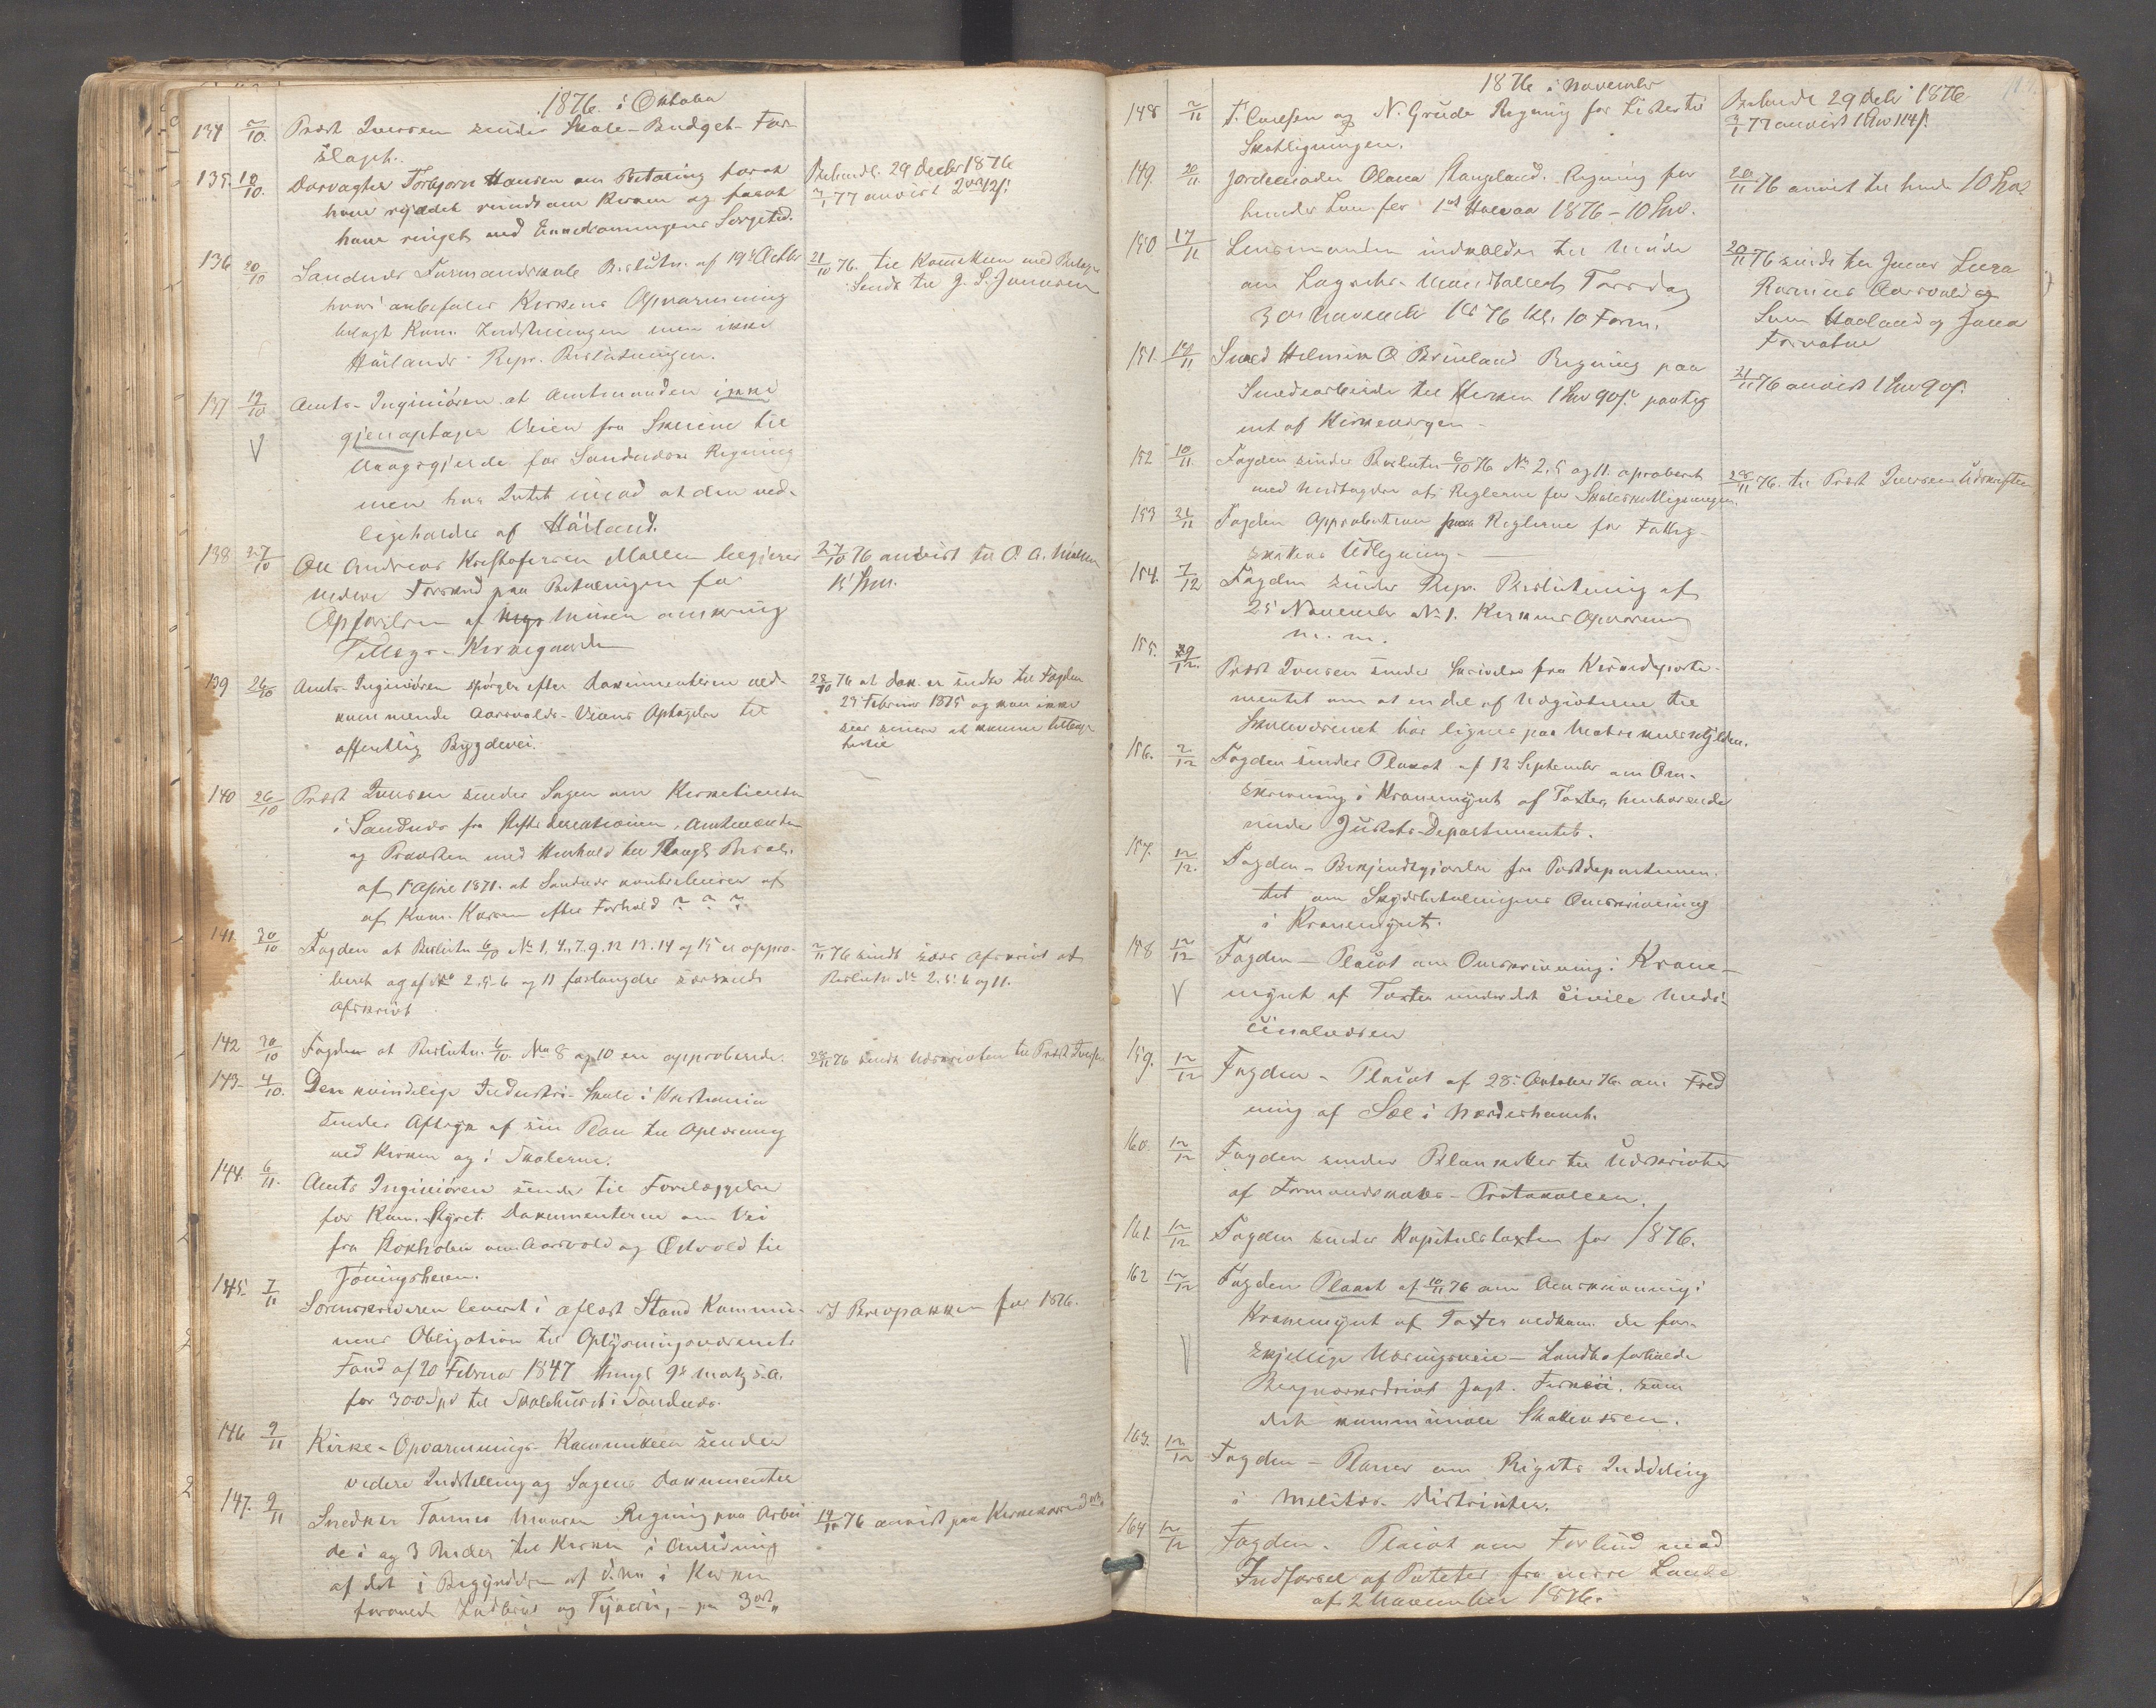 1876. i Oktober
134 2/10. Præst Iversen sender Skole-Budget-For-
slag.
135. 10/10. Dørvagter Torbjørn Hansen om Betaling for at
have ryddet rundt om Kirken og for at
have ringet ved Enkedronningens Sørgetid.
Beslutn. 29 Decbr 1876
3/1 77 anvist
136 20/10 Sandnes Formandskabs Beslutn. af 19de Octbr
hvori anbefales Kirkens Opvarmning
Kom. Indstillingen men ikke
Høilands Repr. Beslutningen.
21/10 76. til Komiteen med Bilage
Sendt til
137 19/10 Amts-Ingeniøren at Amtmanden ikke
gjenoptager Veien fra Skeiene til
for Sandnes's Regning
men har Intet imod at den ved-
ligeholdes af Høiland.
138 27/10 Ole Andreas Kristofersen Malle begjerer
videre Forskud paa Betalingen for
Opførelsen af Muren omkring
Tillægs-Kirkegaarden
27/10 76 anvist til O. A.
139 26/10 Amts-Ingeniøren spørger efter Dokumenterne ved-
kommende Aarsvolds-Veiens Optagelse til
offentlig Bygdevei.
28/10 76 at Dok. er sendt til Fogden
25 Februar 1875 og kan ikke
sees senere at komme tilbage
hertil
140 26/10 Præst Iversen sender Sagen om
i Sandnes fra Stiftsdirektionen, Amtmanden
og Provsten med Henhold til Kongl. Resol.
af 1 April 1871. at Sandnes kontribuerer
af Kom. Kassen efter Forhold ? ? ?
141 30/10 Fogden at Beslutn 6/10 No 1, 4, 7. 9. 12 13. 14 og 15 er appro-
beret og af No 2, 5 6 og 11 forlanges særskilt
Afskrift
2/11 76 sendt Afskrift af
Beslutn. No 2. 5. 6 og 11.
142 30/10 Fogden at Beslutn. 6/10. No 8 og 10 er approberede.
28/11 76 sendt Udskriften til Præst Iversen
143 4/10. Den kvindelige Industri-Skole i Kristiania
sender Aftryk af sin Plan til Oplæring
ved Kirken og i Skolerne.
144. 6/11. Amts Ingeniøren sender til Forelæggelse
for Kom. Styret. Dokumenterne om Vei
fra om Aarsvold og Østvold til
145 7/11 Sorenskriveren leveret i aflæst Stand Kommu-
nens Obligation til Oplysningsvæsenets
Fond af 20 Februar 1847 9de Marts s. A.
for 300 Spd til Skolehuset i Sandnes.
I Brevpakken for 1876.
146 9/11 Kirke-Opvarmnings-Komiteen sender
videre Indstilling og Sagens Dokumenter
147. 9/11 Snedker Tønnes Monsen Regning paa Arbei
de i og 3 til Kirken i Anledning
af det i Begyndelsen af i Kirken
forøvede Indbrud og Tyveri,
14/11 76 anvist paa
1876 i November
148 2/11 og N. Grude Regning for Lister til
Skatligningen.
Beslutn 29 Decbr 1876
3/1 77 anvist
149. 20/11 Jordemoder Olava Stangeland. Regning for
hendes Løn for 1ste Halvaar 1876 - 10
20/11 76 anvist til hende 10
150 17/11 Lensmanden indkalder til Møde
om Torsdag
30 November 1876 Kl. 10 Form.
20/11 76 sendt til Lura
Rasmus Aarsvold og
Sven Haaland og Jonas
151. 19/11 Smed Helmik O Brueland Regning paa
Smedearbeide til Kirken 1 90 paateg
net af Kirkeværgen
21/11 76 anvist 1 90
152 10/11. Fogden sender Beslutn 6/10 76 No 2, 5 og 11. aproberet
med Undtagelse af Reglerne for Skoleskatligningen.
28/11 76. til Præst Iversen Udskriften
153 21/11 Fogden Approbation paa Reglerne for Fattig-
skattens Udligning
154. 7/12 Fogden sender Repr. Beslutning af
25 November No 1. Kirkens Opvarmning
m. m.
155. 29/12. Præst Iversen sender Skrivelse fra Kirkedeparte-
mentet om at en del af Udgifterne til
Skolevæsenet bør lignes paa Matrikulskylden.
156. 2/12 Fogden sender Placat af 12 September om Om-
skrivning i Kronemynt af Taxter, henhørende
under Justits-Departementet.
157. 12/12. Fogden - Bekjendtgjørelse fra Postdepartemen-
tet om Skydsbetalingens Omskrivning
i Kronemynt.
158 12/12 Fogden - Placat om Omskrivning i Krone-
mynt af Taxter under det civile Medi-
cinalvæsen
159. 12/12 Fogden - Placat af 28. Oktober 76. om Fred
ning af Sæl i Nordishavet.
160. 12/12 Fogden sender Blanketter til Udskrifter
af Formandskabs-Protokollen.
161. 12/12 Fogden sender Kapitelstaxten for 1876.
162 12/12 Fogden Placat af 10/11 76 om Omskrivning i
Kronemynt af Taxter vedkom. de for-
skjellige Næringsveie - Landboforholde
Bergværksdrift Jagt. Fiskeri. samt
det kommunale Skattevæsen.
163. 12/12 Fogden - Planer om Rigets Inddeling
i Militær-Distrikter.
164 12/12 Fogden. Placat om Forbud mod
Indførsel af Poteter fra visse Lande
af 2 November 1876.